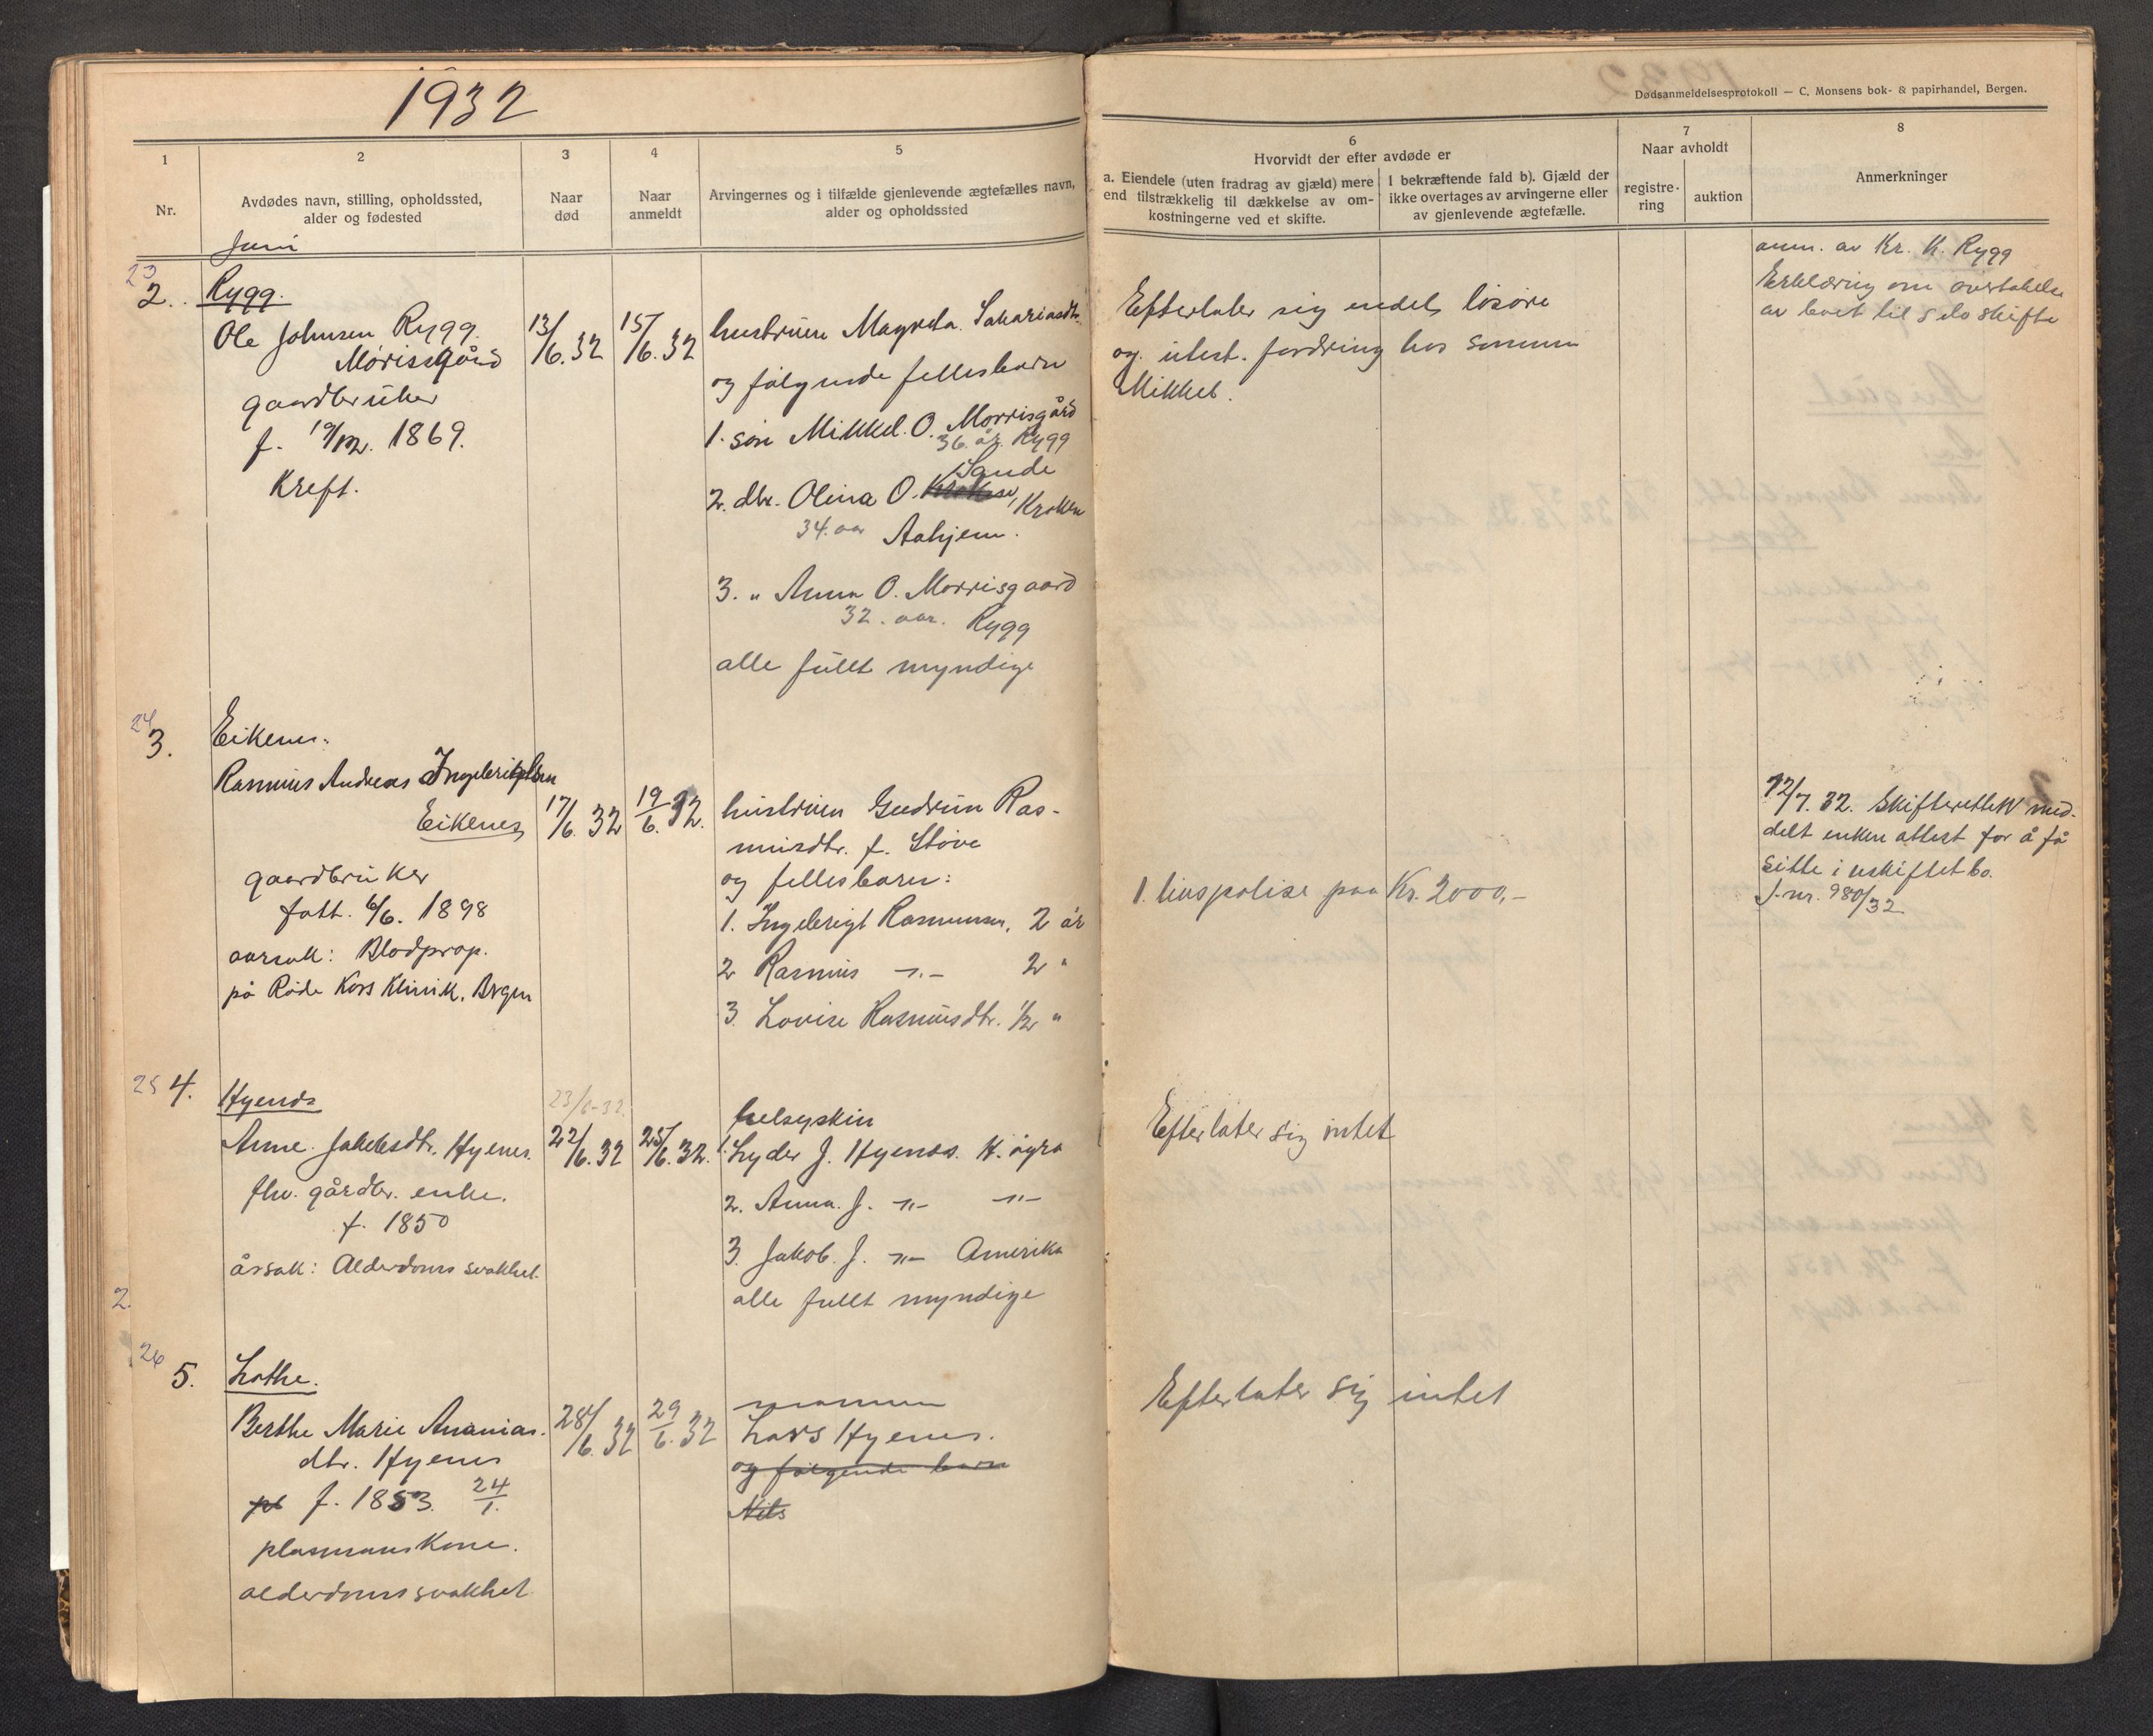 1932
Dødsanmeldelsesprotokoll — C. Monsens bok- & papirhandel, Bergen.
1
Nr.
2
Avdødes navn, stilling, opholdssted,
alder og fødested
3
Naar
død
4
Naar
anmeldt
5
Arvingernes og i tilfælde gjenlevende ægtefælles navn,
alder og opholdssted
6
Hvorvidt der efter avdøde er
a. Eiendele (uten fradrag av gjæld) mere
end tilstrækkelig til dækkelse av om-
kostningerne ved et skifte.
I bekræftende fald b). Gjæld der
ikke overtages av arvingerne eller
av gjenlevende ægtefælle.
7
Naar avholdt
registre-
ring
auktion
8
Anmerkninger
Juni
23
2.
Rygg.
Ole Johnsen Rygg.
Morissgård
gaardbruker
f. 19/12. 1869.
Kreft.
13/6. 32
15/6. 32
hustruen Magreta Sakariasdtr.
og følgende fellesbarn
1. søn Mikkel. O. Morrisgård
36. år. Rygg
Sande
2. dtr. Olina O. Kroken
34. aar Aahjem.
3. " Anna O. Morrisgaard
32. aar. Rygg
alle fullt myndige
Efterlater sig endel løsøre
og utest. fordring hos sønnen
Mikkel.
anm. av Kr. K. Rygg
Erklæring om overtakelse
av boet til selvskifte
24
3.
Eikenes.
Rasmus Andreas Ingebrigtsen
Eikenes
gaardbruker
født. 6/6. 1898
aarsak: Blodprop.
på Røde Kors Klinik, Brgen
17/6. 32
19/6. 32.
hustruen Gudrun Ras-
musdtr. f. Støve
og fellesbarn:
1. Ingebrigt Rasmussen, 2 år
2 Rasmus -"- 2 "
3. Lovise Rasmusdtr. 1/2 "
1. livspolise paa Kr. 2000,-
12/7. 32. Skifteretten med-
delt enken attest for å få
sitte i uskiftet bo.
J.nr. 980/32
25
4.
Hyenes
Anne Jakobsdtr. Hyenes.
fhv. gårdbr. enke.
f. 1850
årsak: Alderdoms svakhet.
23/6-32.
22/6. 32
25/6. 32.
helsyskin
1. Lyder J. Hyenes. H. øyra
2. Anna. J. -"- -"-
3. Jakob. J. -"- Amerika
alle fullt myndige
Efterlater sig intet
2.
26
5.
Lothe.
Berthe Marie Ananias.
dtr. Hyenes
f. 1853. 24/1.
plasmanskone.
alderdomssvakhet
28/6. 32
29/6. 32
mannen
Lars Hyenes.
og følgende barn
Nils
Efterlater sig intet